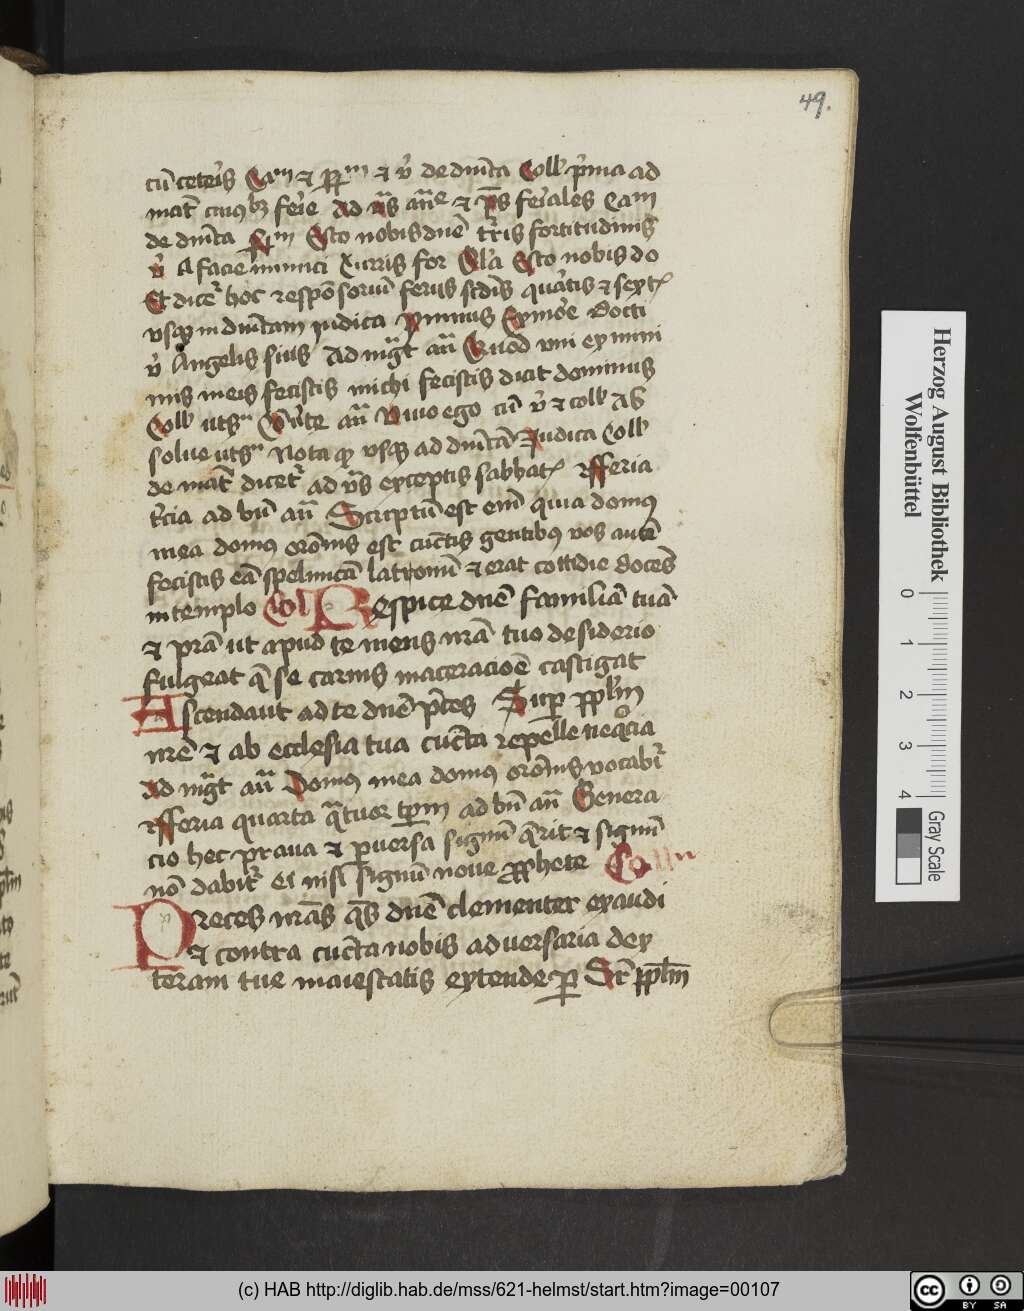 49.
cū ceteris Cam̄ ⁊ R̄m ⁊ v̄ de dnīca Coll̄ prima ad
mat̄ cuiuslibꝫ ferie Ad v̄s an̄e ⁊ p̄s feriales Cam̄
de dnīca R̄m Esto nobis dnē tr̄ris fortitudinis
v̄ A facie inimici Turris for Gl'a Esto nobis do
Et dicet̄ hoc responsoriū feriis sc̄dis quartis ⁊ sext̄
vsqꝫ in dnīcam Judica Primus Eximie Docti
v̄ Angelis suis Ad mgt̄ an̄ Quod vni ex mini
mis meis fecistis michi fecistis dicit dominus
Coll̄ vts̄ an̄ Viuo ego cū v̄ ⁊ coll̄ Ab
solue vts̄ Nota ꝙ vsqꝫ ad dnīcā Judica Coll̄
de mat̄ dicet̄ ad v̄s exceptis sabbat̄ ¶ fferia
t̄cia ad bn̄ an̄ Scriptū est em̄ quia domꝰ
mea domꝰ orōnis est cūctis gentibꝰ vos autē
fecistis eā speluncā latronū ⁊ erat cottidie docēs
in templo Col Respice dnē familiā tuā
⁊ prā ut apud te mens nr̄a tuo desiderio
fulgeat q̄ se carnis maceracioē castigat
Ascendant ad te dnē p̄ces Sup̄ ppl̄m
nr̄e ⁊ ab ecclesia tua cūcta repelle neq̄cia
Ad mgt̄ an̄ Domꝰ mea domꝰ orōnis vocabit̄
¶ fferia quarta q̄tuor tp̄m ad bn̄ an̄ Genera
cio hec praua ⁊ puersa signū q̄rit ⁊ signū
nō dabit̄ ei nisi signū none pphete Colln
Preces nr̄as q̄s dnē clementer exaudi
⁊ contra cūcta nobis aduersaria dex
teram tue maiestatis extende p Sr̄ ppl̄m
Herzog August Bibliothek
Wolfenbüttel
0 1 2 3 4
Gray Scale
(c) HAB http://diglib.hab.de/mss/621-helmst/start.htm?image=00107
cc BY SA